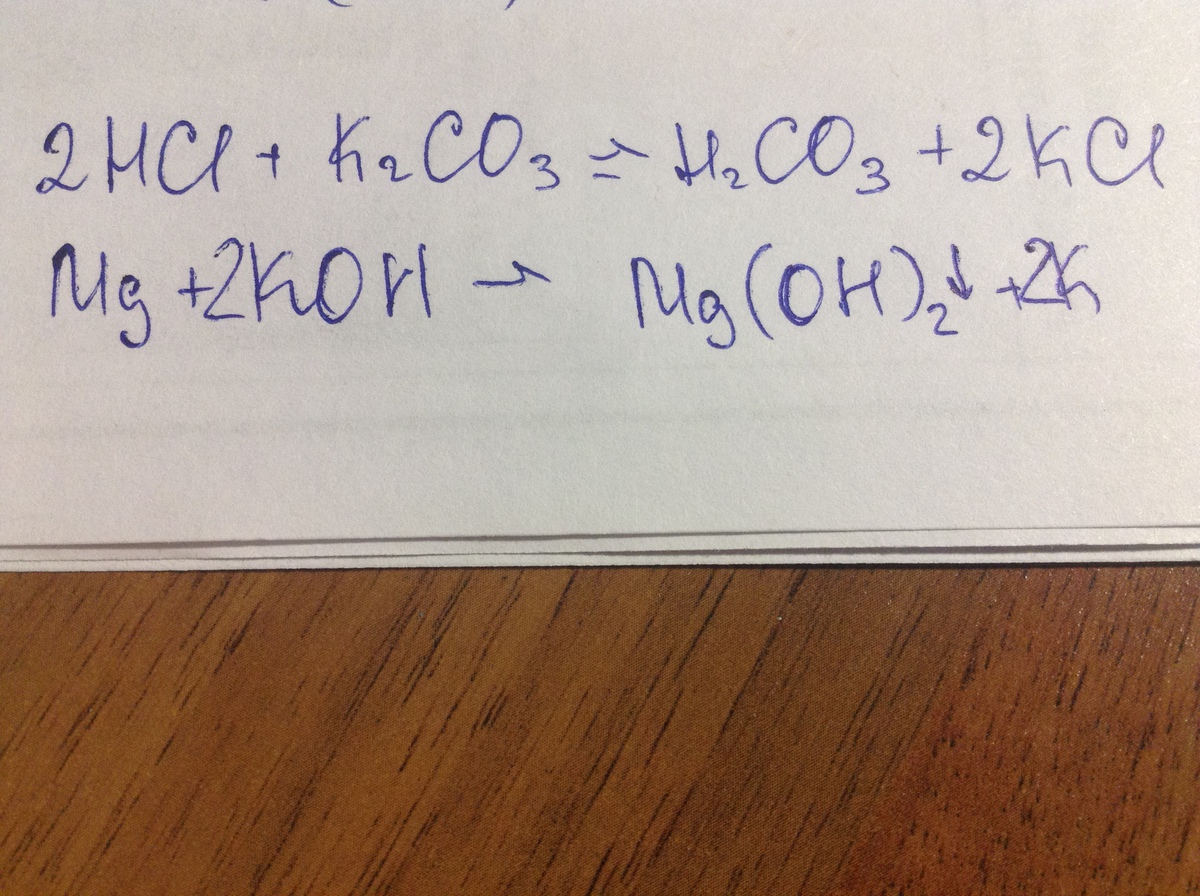 2HCl + K₂CO₃ ⇒ H₂CO₃ + 2KCl
Mg + 2KOH → Mg(OH)₂↓ + 2K